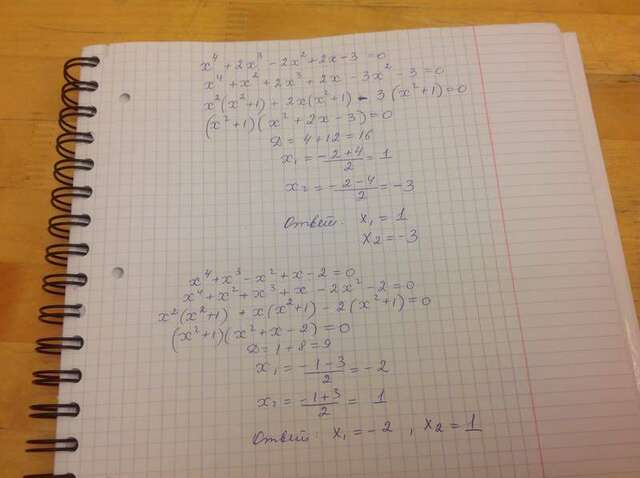 x⁴ + 2x³ - 2x² + 2x - 3 = 0
x⁴ + x² + 2x³ + 2x - 3x² - 3 = 0
x²(x²+1) + 2x(x²+1) - 3(x²+1) = 0
(x²+1)(x² + 2x - 3) = 0
D = 4 + 12 = 16
x₁ = (-2+4)/2 = 1
x₂ = (-2-4)/2 = -3
Ответ: x₁ = 1
x₂ = -3
x⁴ + x³ - x² + x - 2 = 0
x⁴ + x² + x³ + x - 2x² - 2 = 0
x²(x²+1) + x(x²+1) - 2(x²+1) = 0
(x²+1)(x² + x - 2) = 0
D = 1 + 8 = 9
x₁ = (-1-3)/2 = -2
x₂ = (-1+3)/2 = 1
Ответ: x₁ = -2, x₂ = 1